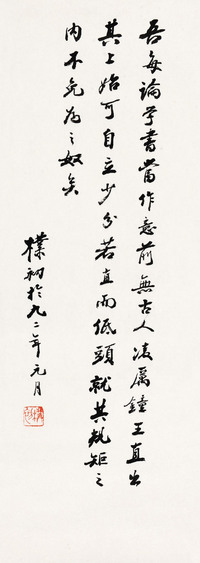 吾每論学書當作意前無古人凌厲鍾王直出
其上始可自立少分若直而低頭就其規矩之
内不免為之奴矣
樸初於九二年元月